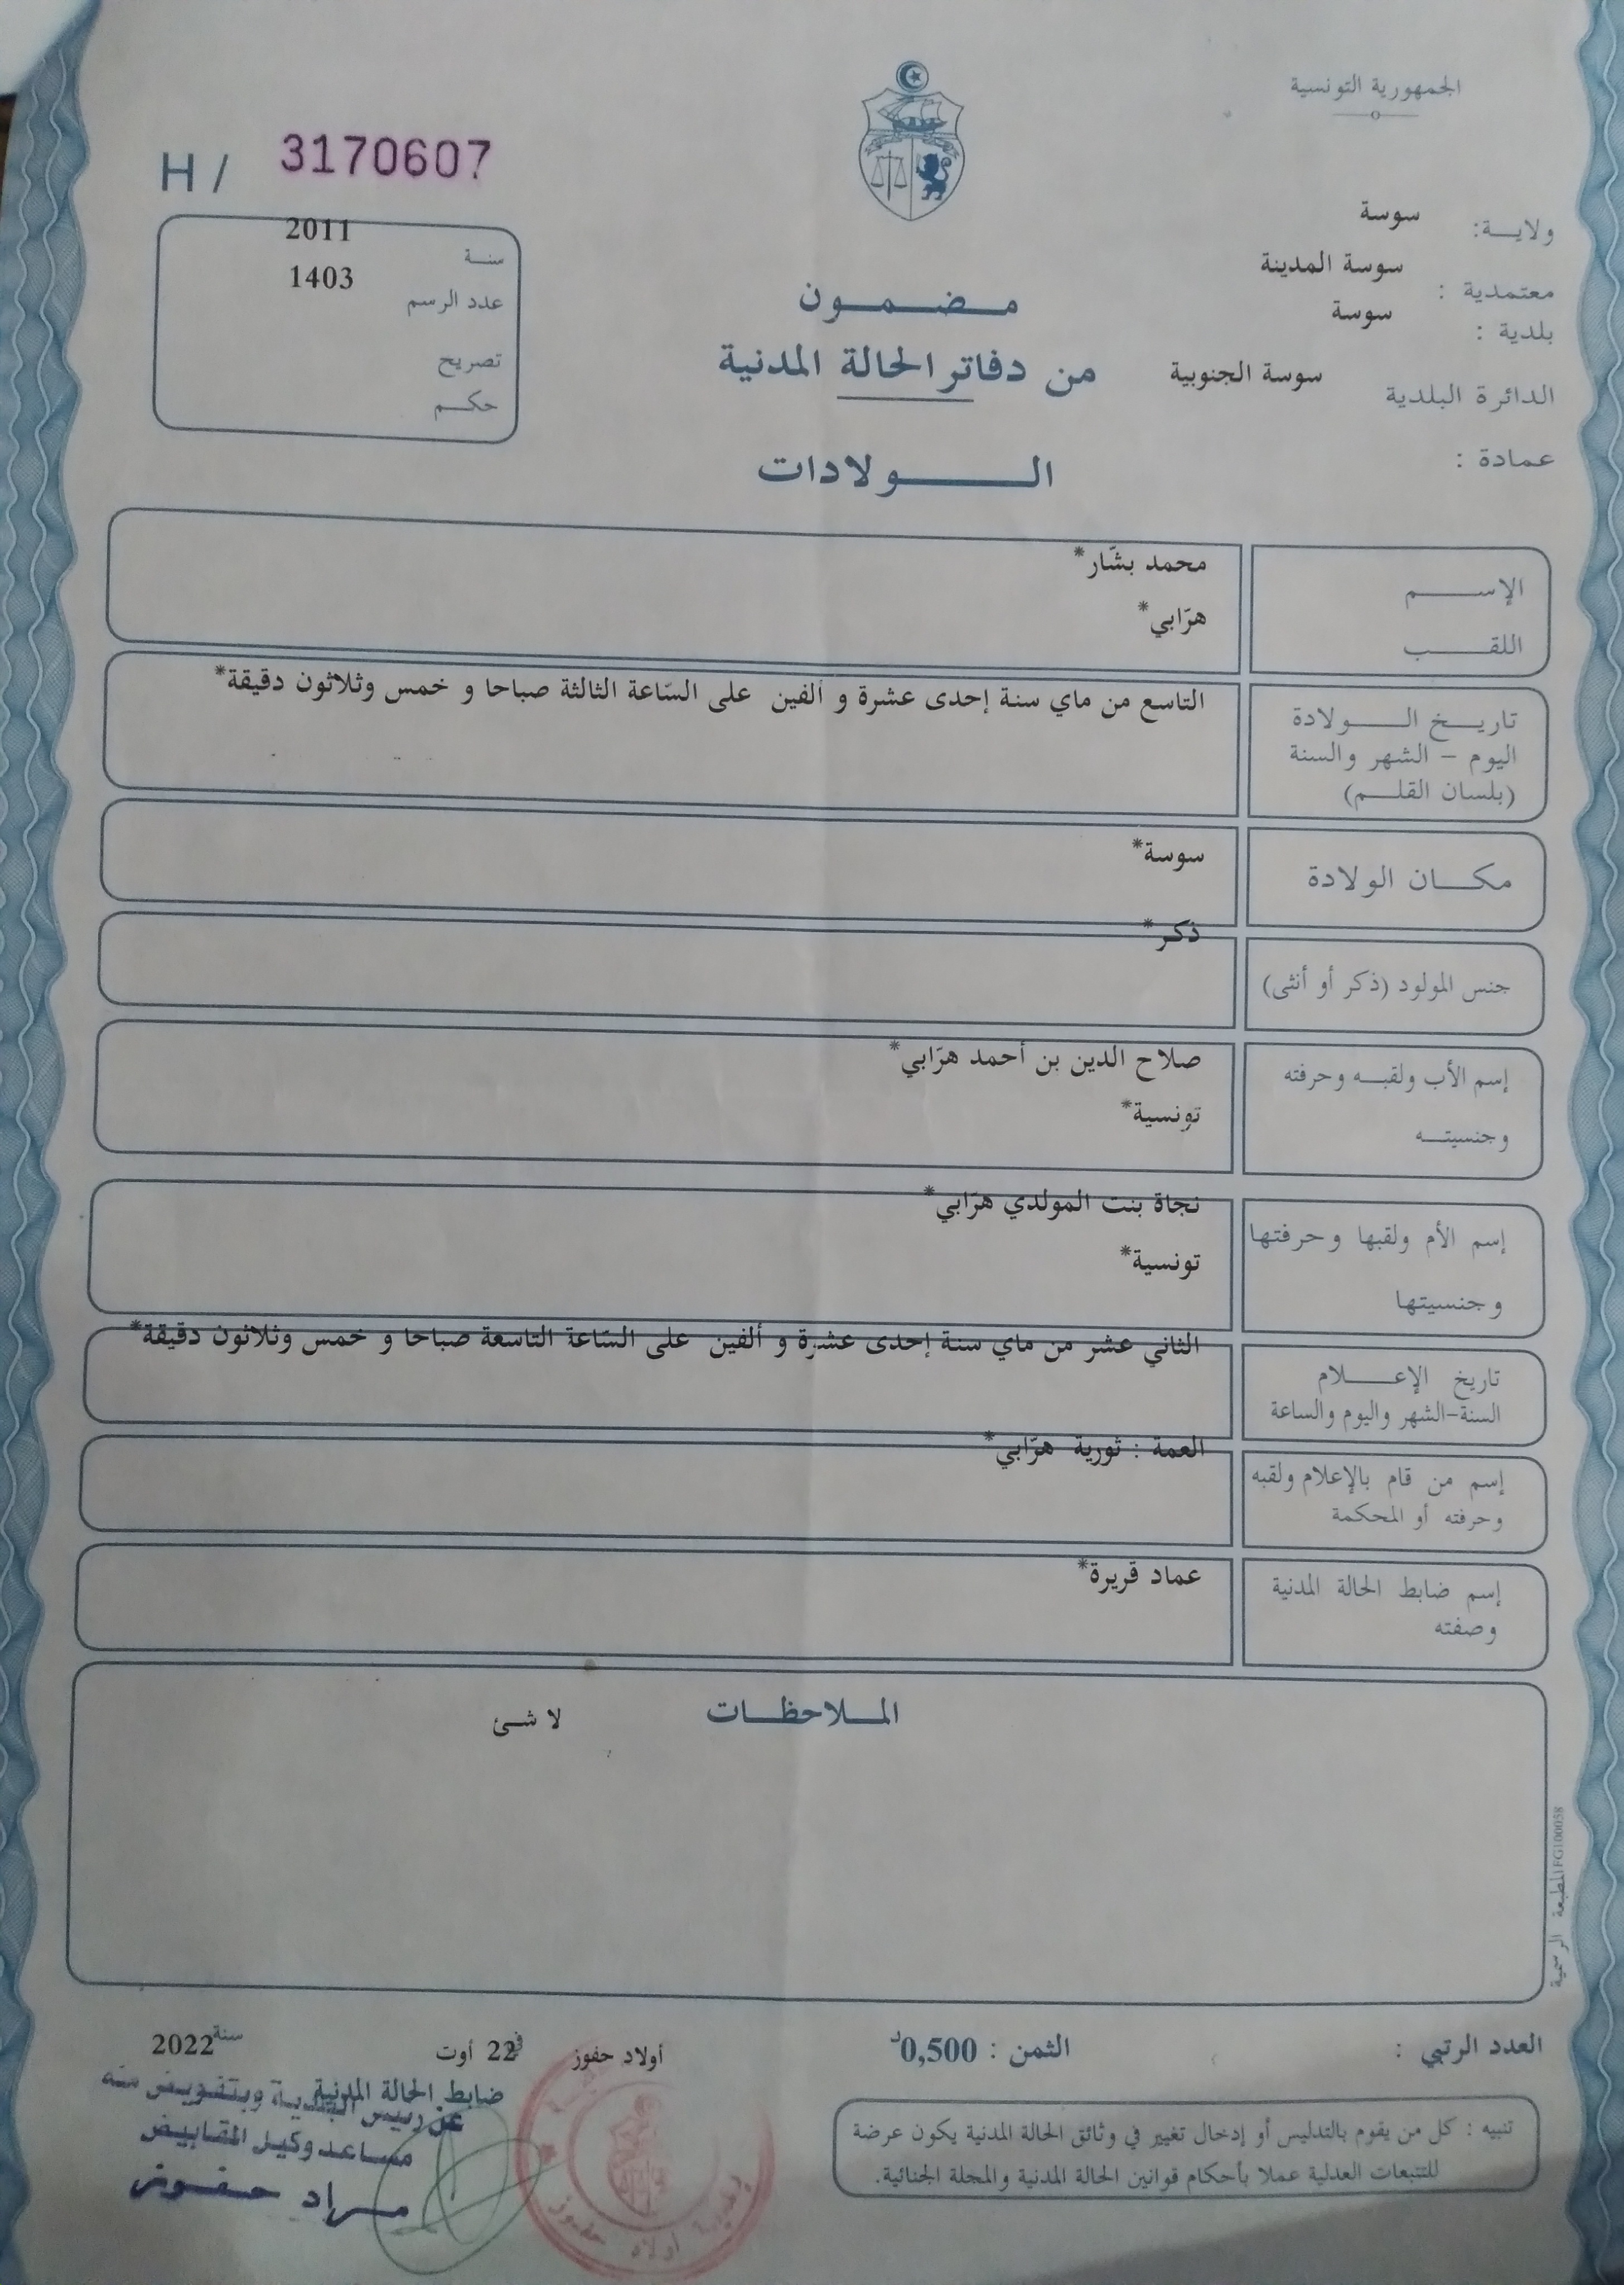 الجمهورية التونسية
H / 3170607
ولايـــة: سوسة
معتمدية : سوسة المدينة
بلدية : سوسة
الدائرة البلدية سوسة الجنوبية
عمادة :
سنـة 2011
عدد الرسم 1403
تصريح
حكـم
مـضـمـون
من دفاتر الحالة المدنية
الـــولادات
الإســـم محمد بشّار*
اللقـــب هرّابي*
تاريـخ الـــولادة
اليوم – الشهر والسنة
(بلسان القلـم)
التاسع من ماي سنة إحدى عشرة و ألفين على السّاعة الثالثة صباحا و خمس وثلاثون دقيقة*
مكـــان الولادة سوسة*
جنس المولود (ذكر أو أنثى) ذكر*
إسم الأب ولقبـه وحرفته صلاح الدين بن أحمد هرّابي*
وجنسيتـــه تونسية*
إسم الأم ولقبها وحرفتها نجاة بنت المولدي هرّابي*
وجنسيتها تونسية*
تاريخ الإعـــلام
السنة-الشهر واليوم والساعة
الثاني عشر من ماي سنة إحدى عشرة و ألفين على السّاعة التاسعة صباحا و خمس وثلاثون دقيقة*
إسم من قام بالإعلام ولقبه
وحرفته أو المحكمة
العمة : ثورية هرّابي*
إسم ضابط الحالة المدنية
وصفته
عماد قريرة*
المـلاحظـات
لا شئ
المطبعة الرسمية
العدد الرتبي :
الثمن : 0,500د
أولاد حفوز في 22 أوت سنة 2022
ضابط الحالة المدنية
عن رئيس البلدية وبتفويض منه
مساعد وكيل المقابيض
مراد حفوز
بلدية أولاد حفوز
تنبيه : كل من يقوم بالتدليس أو إدخال تغيير في وثائق الحالة المدنية يكون عرضة
للتتبعات العدلية عملا بأحكام قوانين الحالة المدنية والمجلة الجنائية.